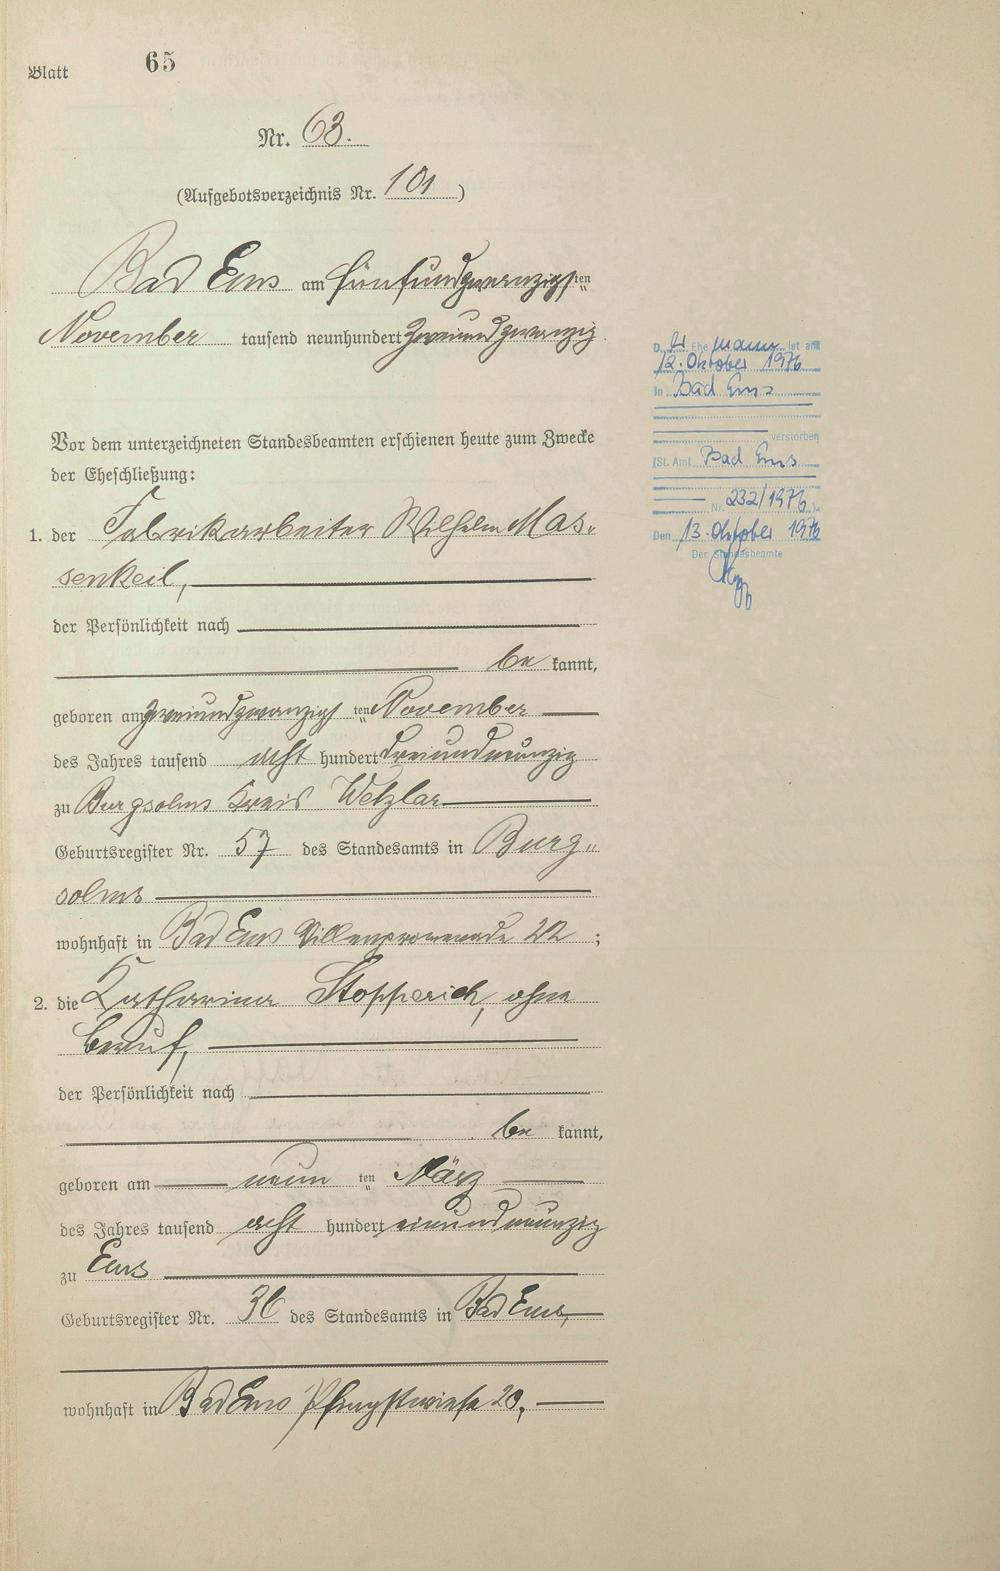 Blatt 65
Nr. 63.
(Aufgebotsverzeichnis Nr. 101)
Bad Ems am fünfundzwanzigsten
November tausend neunhundert zweiundzwanzig.
Vor dem unterzeichneten Standesbeamten erschienen heute zum Zwecke
der Eheschließung:
1. der Fabrikarbeiter Wilhelm Mas-
senkeil,
der Persönlichkeit nach
be kannt,
geboren am zweiundzwanzigsten November
des Jahres tausend acht hundert dreiundneunzig
zu Burgsolms Kreis Wetzlar
Geburtsregister Nr. 57 des Standesamts in Burg-
solms
wohnhaft in Bad Ems Villenpromenade 22 ;
2. die Katharina Stopperich, ohne
Beruf,
der Persönlichkeit nach
be kannt,
geboren am neunten März
des Jahres tausend acht hundert einundneunzig
zu Ems
Geburtsregister Nr. 36 des Standesamts in Bad Ems,
wohnhaft in Bad Ems Pfingstwiese 20,
Der Ehemann ist am
12. Oktober 1976
in Bad Ems
verstorben
(St. Amt Bad Ems
Nr. 232/1976).
Den 13. Oktober 1976
Der Standesbeamte